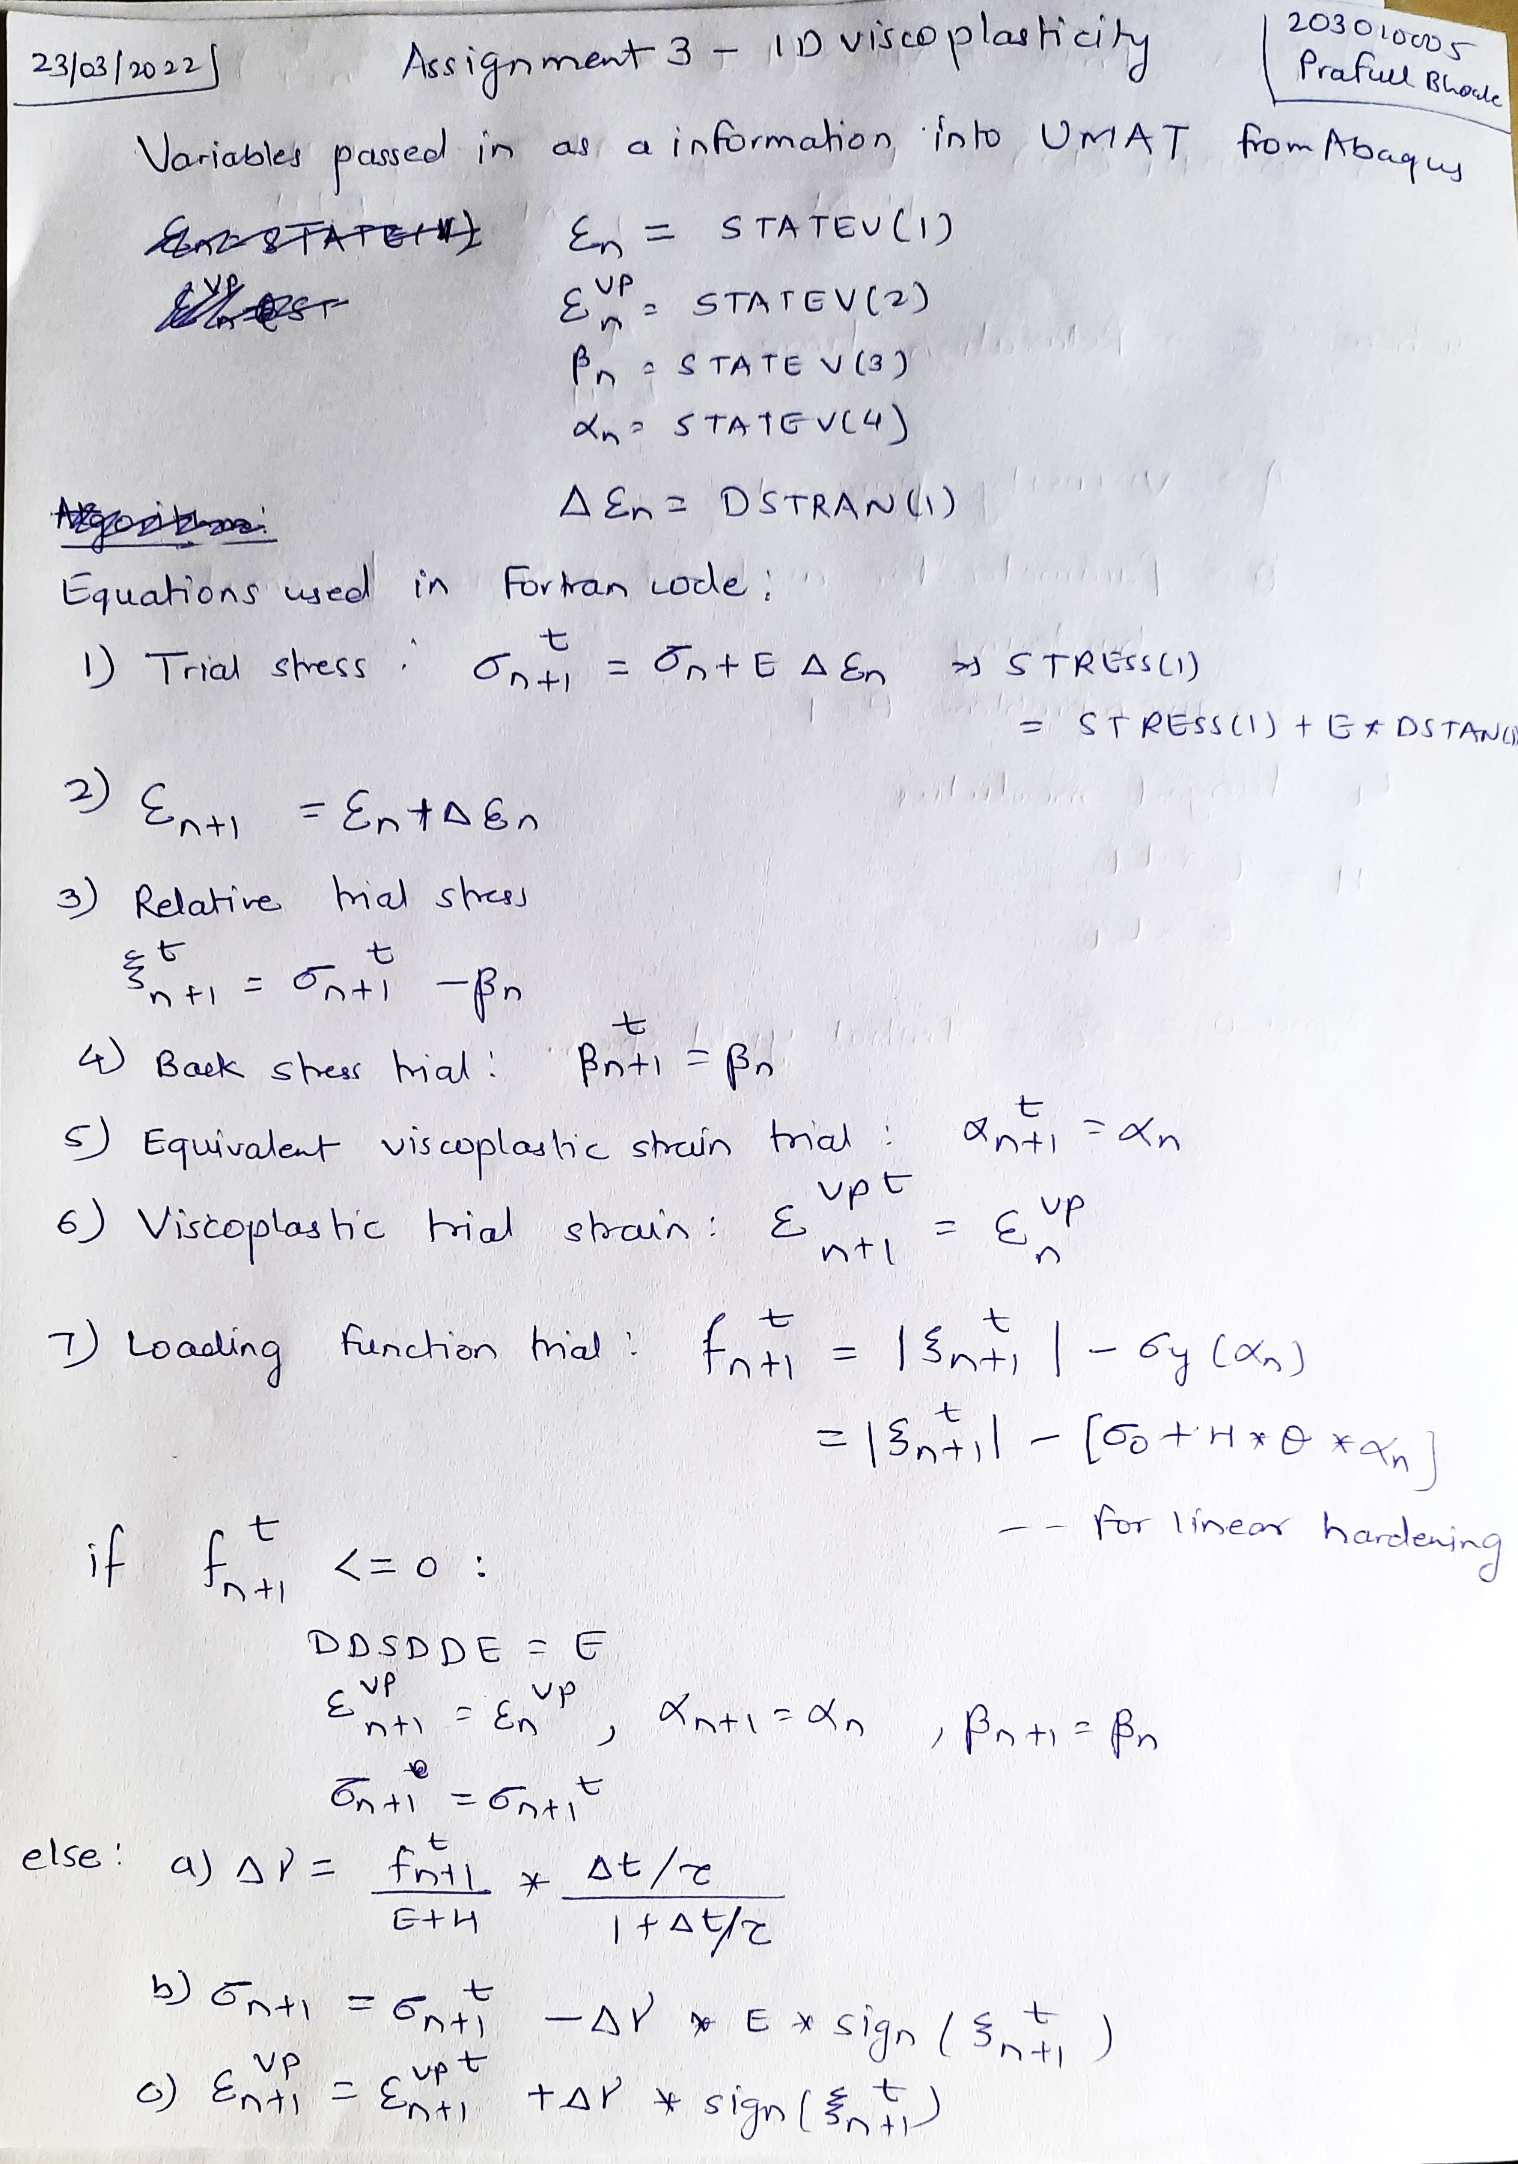 23/03/2022
Assignment 3 - 1D viscoplasticity
203010005
Prafull
Variables passed in as a information into UMAT from Abaqus
εn = STATEV(1)
εn^vp = STATEV(2)
βn = STATEV(3)
αn = STATEV(4)
Δεn = DSTRAN(1)
Equations used in Fortran code:
1) Trial stress : σn+1^t = σn + E Δεn ⇒ STRESS(1)
= STRESS(1) + E * DSTAN(1)
2) εn+1 = εn + Δεn
3) Relative trial stress
ξn+1^t = σn+1^t - βn
4) Back stress trial : βn+1^t = βn
5) Equivalent viscoplastic strain trial : αn+1^t = αn
6) Viscoplastic trial strain : εn+1^vp t = εn^vp
7) Loading function trial : fn+1^t = |ξn+1^t| - σy(αn)
= |ξn+1^t| - [σ0 + H * θ * αn]
-- for linear hardening
if fn+1^t <= 0 :
DDSDDE = E
εn+1^vp = εn^vp , αn+1 = αn , βn+1 = βn
σn+1 = σn+1^t
else : a) Δγ = fn+1^t / (E+H) * (Δt/τ) / (1+Δt/τ)
b) σn+1 = σn+1^t - Δγ * E * sign(ξn+1^t)
c) εn+1^vp = εn+1^vp t + Δγ * sign(ξn+1^t)